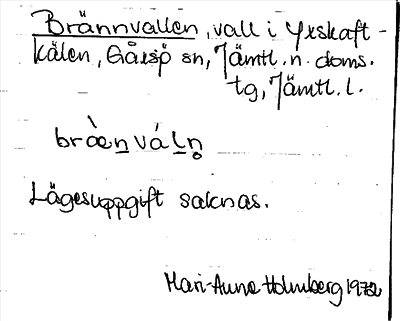 Brännvallen, vall i Yxskaft-
kälen, Gåxsjö sn, Jämtl. n. doms.
tg, Jämtl. l.
bròe̲nváḻn̥
Lägesuppgift saknas.
Mari-Anne Holmberg 1972